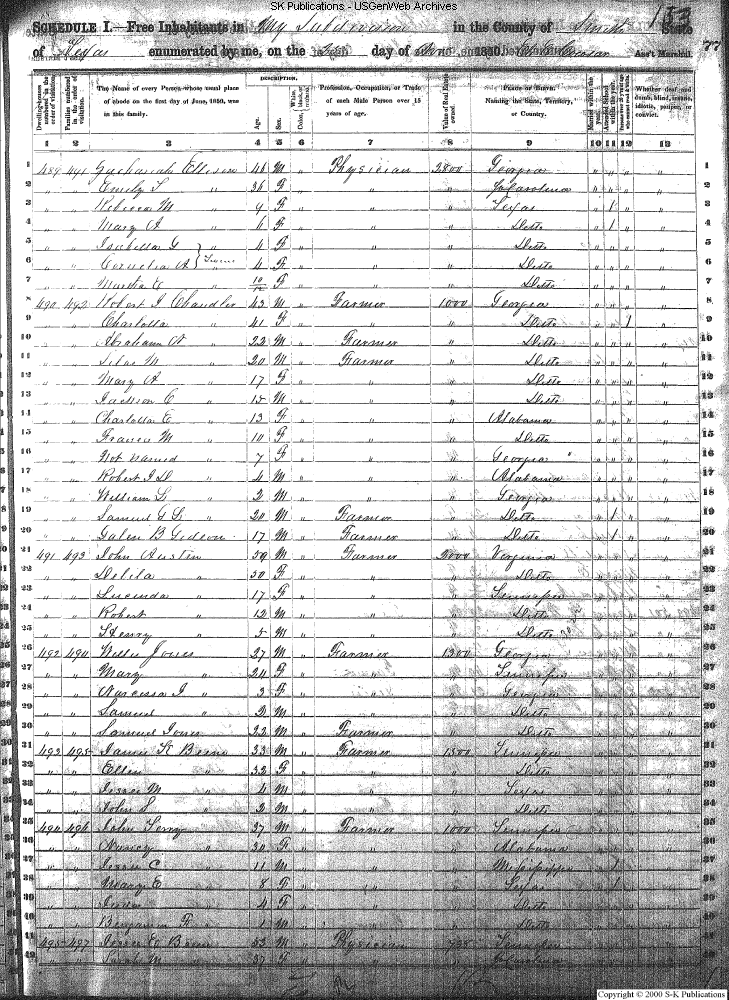 SK Publications - USGenWeb Archives
153
SCHEDULE I.—Free Inhabitants in My Subdivision in the County of Smith State
of Texas enumerated by me, on the day of 1850. Ass't Marshal. 77
Dwelling-houses numbered in the order of visitation.
Families numbered in the order of visitation.
The Name of every Person whose usual place of abode on the first day of June, 1850, was in this family.
DESCRIPTION.
Age.
Sex.
White, black, or mulatto.
Color,
Profession, Occupation, or Trade of each Male Person over 15 years of age.
Value of Real Estate owned.
PLACE OF BIRTH. Naming the State, Territory, or Country.
Married within the year.
Attended School within the year.
Persons over 20 y'rs of age who cannot read & write.
Whether deaf and dumb, blind, insane, idiotic, pauper, or convict.
1 2 3 4 5 6 7 8 9 10 11 12 13
1 489 491 Zachariah Ellison 46 M " Physician 2800 Georgia " " " 1
2 " " Emily L " 36 F " " " S Carolina " " " 2
3 " " Rebecca M " 9 F " " " Texas " 1 " 3
4 " " Mary A " 6 F " " " Ditto " 1 " 4
5 " " Isabella G 4 F " " " Ditto " " " 5
6 " " Cornelia A } Twins 4 F " " " Ditto " " " 6
7 " " Martha E " 10/12 F " " " Ditto " " " 7
8 490 492 Robert J Chandler 43 M " Farmer 1000 Georgia " " " 8
9 " " Charlotta " 41 F " " " Ditto " " 1 9
10 " " Abraham W " 22 M " Farmer " Ditto " " " 10
11 " " M " 20 M " Farmer " Ditto " " " 11
12 " " Mary A " 17 F " " " Ditto " " " 12
13 " " Jackson C " 15 M " " " Ditto " " " 13
14 " " Charlotta E " 13 F " " " Alabama " " " 14
15 " " Frances M " 10 F " " " Ditto " " " 15
16 " " Not named " 7 F " " " Georgia " " " 16
17 " " Robert J D " 4 M " " " Alabama " " " 17
18 " " William L " 2 M " " " Georgia " " " 18
19 " " Samuel G L " 20 M " Farmer " Ditto " 1 " 19
20 " " Galen B Gideon 17 M " Farmer " Ditto " 1 " 20
21 491 493 John Austin 50 M " Farmer Virginia " " " 21
22 " " Delila " 50 F " " " Ditto " " " 22
23 " " Lucinda " 17 F " " " Tennessee " " " 23
24 " " Robert " 12 M " " " Ditto " " " 24
25 " " Henry " 5 M " " " Ditto " " " 25
26 492 494 Willie Jones 27 M " Farmer 1300 Georgia " " " 26
27 " " Mary " 24 F " " " Tennessee " " " 27
28 " " Narcissa J " 3 F " " " Georgia " " " 28
29 " " Samuel " 2 M " " " Ditto " " " 29
30 " " Samuel Jones 22 M " Farmer " Ditto " " " 30
31 493 495 James K Bean 33 M " Farmer 1500 Tennessee " " " 31
32 " " Ellen " 32 F " " " Ditto " " " 32
33 " " Jesse M " 4 M " " " Texas " " " 33
34 " " John S " 2 M " " " Ditto " " " 34
35 494 496 John Terry 37 M " Farmer 1000 Tennessee " " " 35
36 " " Nancy " 30 F " " " Alabama " " " 36
37 " " Jesse C " 11 M " " " Mississippi " 1 " 37
38 " " Mary E " 8 F " " " Texas " 1 " 38
39 " " " 4 F " " " Ditto " " " 39
40 " " Benjamin F " 1 M " " " Ditto " " " 40
41 495 497 Jesse E Bean 53 M " Physician 738 Tennessee " " " 41
42 " " Sarah M " 37 F " " " S Carolina " " " 42
Copyright © 2000 S-K Publications